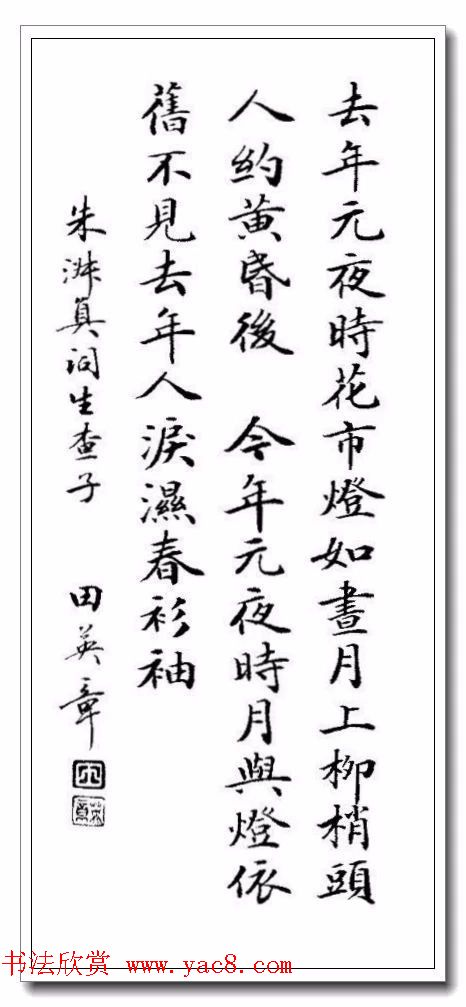 去年元夜時花市燈如晝月上柳梢頭
人約黃昏後 今年元夜時月與燈依
舊不見去年人淚濕春衫袖
朱淑真詞生查子 田英章
书法欣赏 www.yac8.com